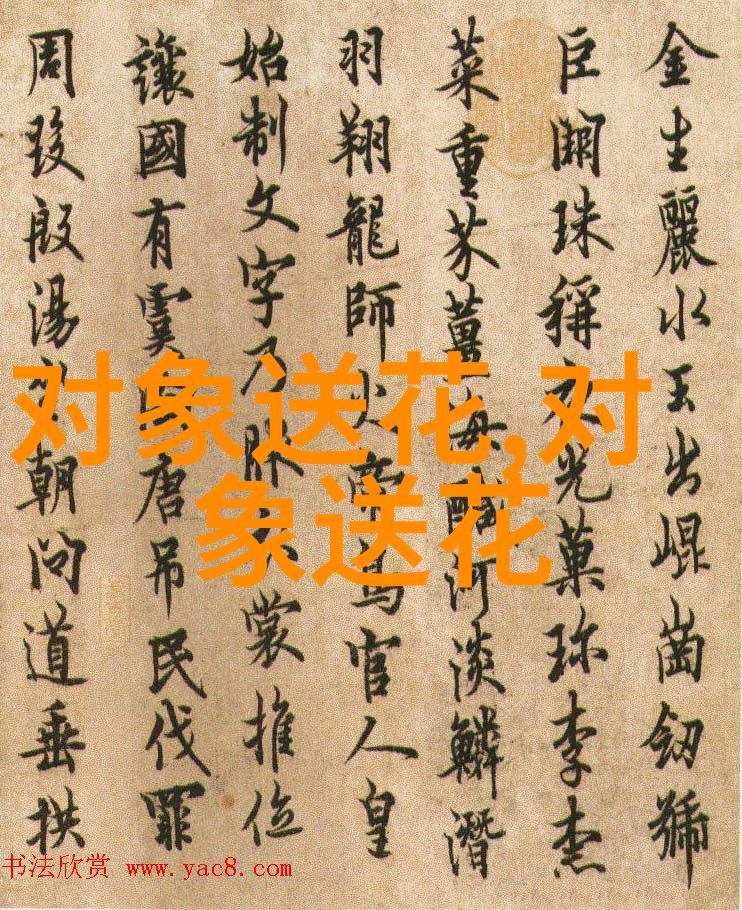 金生麗水玉出崐崗釼號
巨闕珠稱夜光菓珎李柰
菜重芥薑海醎河淡鱗潛
羽翔龍師火帝鳥官人皇
始制文字乃服衣裳推位
讓國有虞陶唐吊民伐罪
周發殷湯坐朝問道垂拱
对象送花,对
象送花
书法欣赏 www.yac8.com